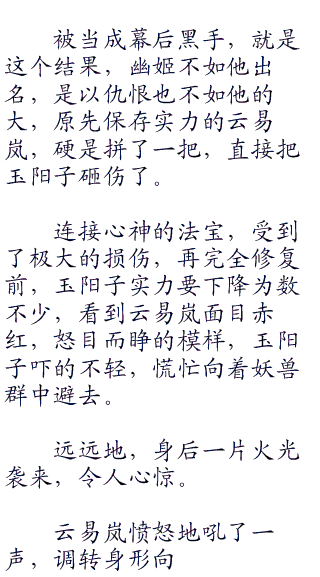 被当成幕后黑手，就是
这个结果，幽姬不如他出
名，是以仇恨也不如他的
大，原先保存实力的云易
岚，硬是拼了一把，直接把
玉阳子砸伤了。
连接心神的法宝，受到
了极大的损伤，再完全修复
前，玉阳子实力要下降为数
不少，看到云易岚面目赤
红，怒目而睁的模样，玉阳
子吓的不轻，慌忙向着妖兽
群中避去。
远远地，身后一片火光
袭来，令人心惊。
云易岚愤怒地吼了一
声，调转身形向